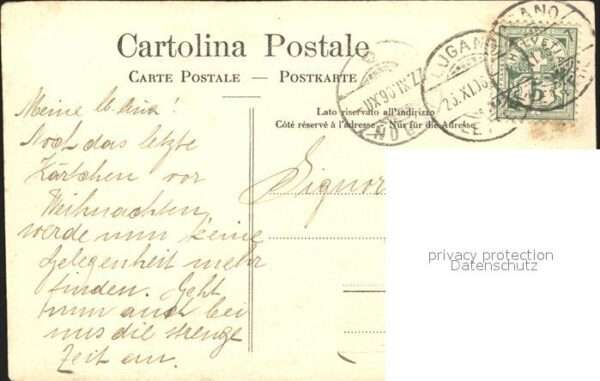 Cartolina Postale
CARTE POSTALE — POSTKARTE
Lato riservato all'indirizzo
Côté réservé à l'adresse - Nur für die Adresse
LUGANO
HELVETIA
5
Meine
Noch das letzte
Kärtchen vor
Weihnachten,
werde nun keine
Gelegenheit mehr
finden. Geht
nun auch bei
uns die strenge
Zeit an.
Signor
privacy protection
Datenschutz